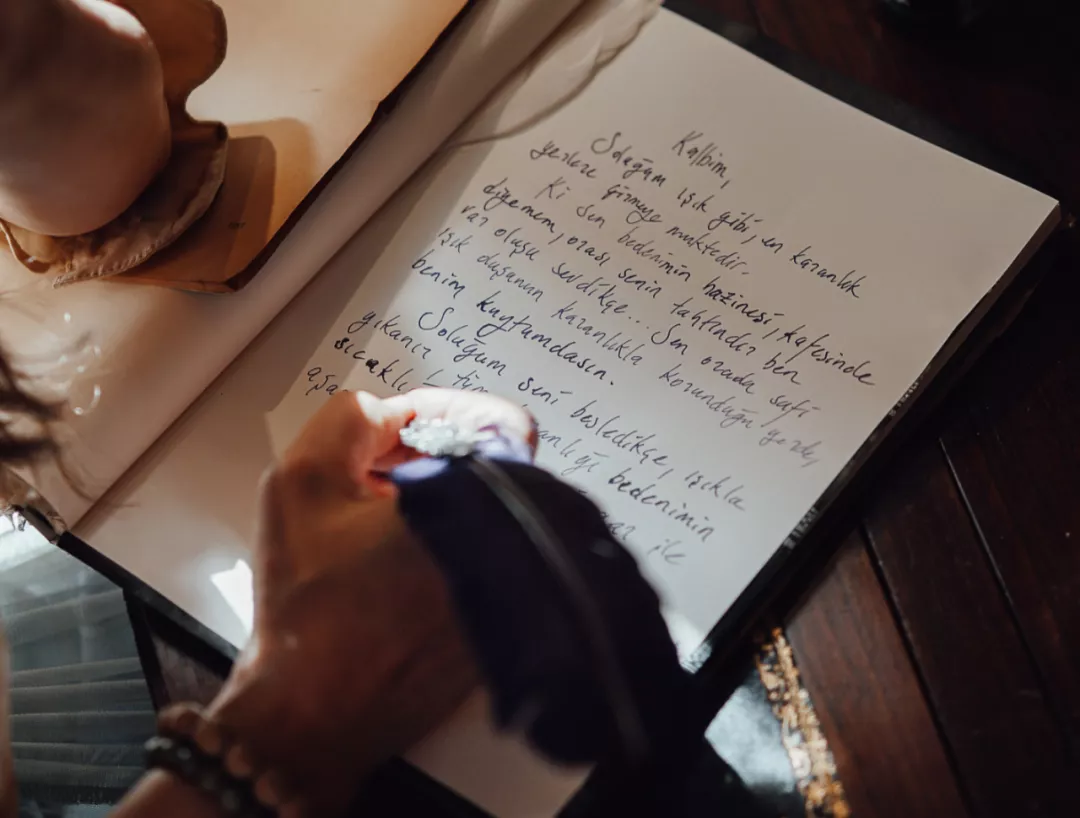 Kalbim,
Soluğum ışık gibi, en karanlık
yerlere girmeye muktedir.
Ki sen bedenimin hazinesi, kafesinde
diyemem, orası senin tahtındır ben
var oluşu sevdikçe... Sen orada safi
ışık duşunun karanlıkla korunduğu yerde,
benim kuytumdasın.
Soluğum seni besledikçe, ışıkla
yıkanır bedenimin
ile